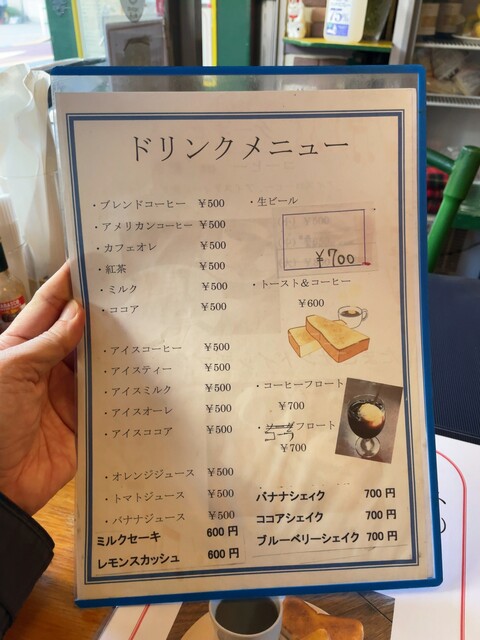 ドリンクメニュー
・ブレンドコーヒー ￥500
・アメリカンコーヒー ￥500
・カフェオレ ￥500
・紅茶 ￥500
・ミルク ￥500
・ココア ￥500
・アイスコーヒー ￥500
・アイスティー ￥500
・アイスミルク ￥500
・アイスオーレ ￥500
・アイスココア ￥500
・オレンジジュース ￥500
・トマトジュース ￥500
・バナナジュース ￥500
ミルクセーキ 600円
レモンスカッシュ 600円
・生ビール
￥700
・トースト＆コーヒー
￥600
・コーヒーフロート
￥700
・コーラフロート
￥700
バナナシェイク 700円
ココアシェイク 700円
ブルーベリーシェイク 700円